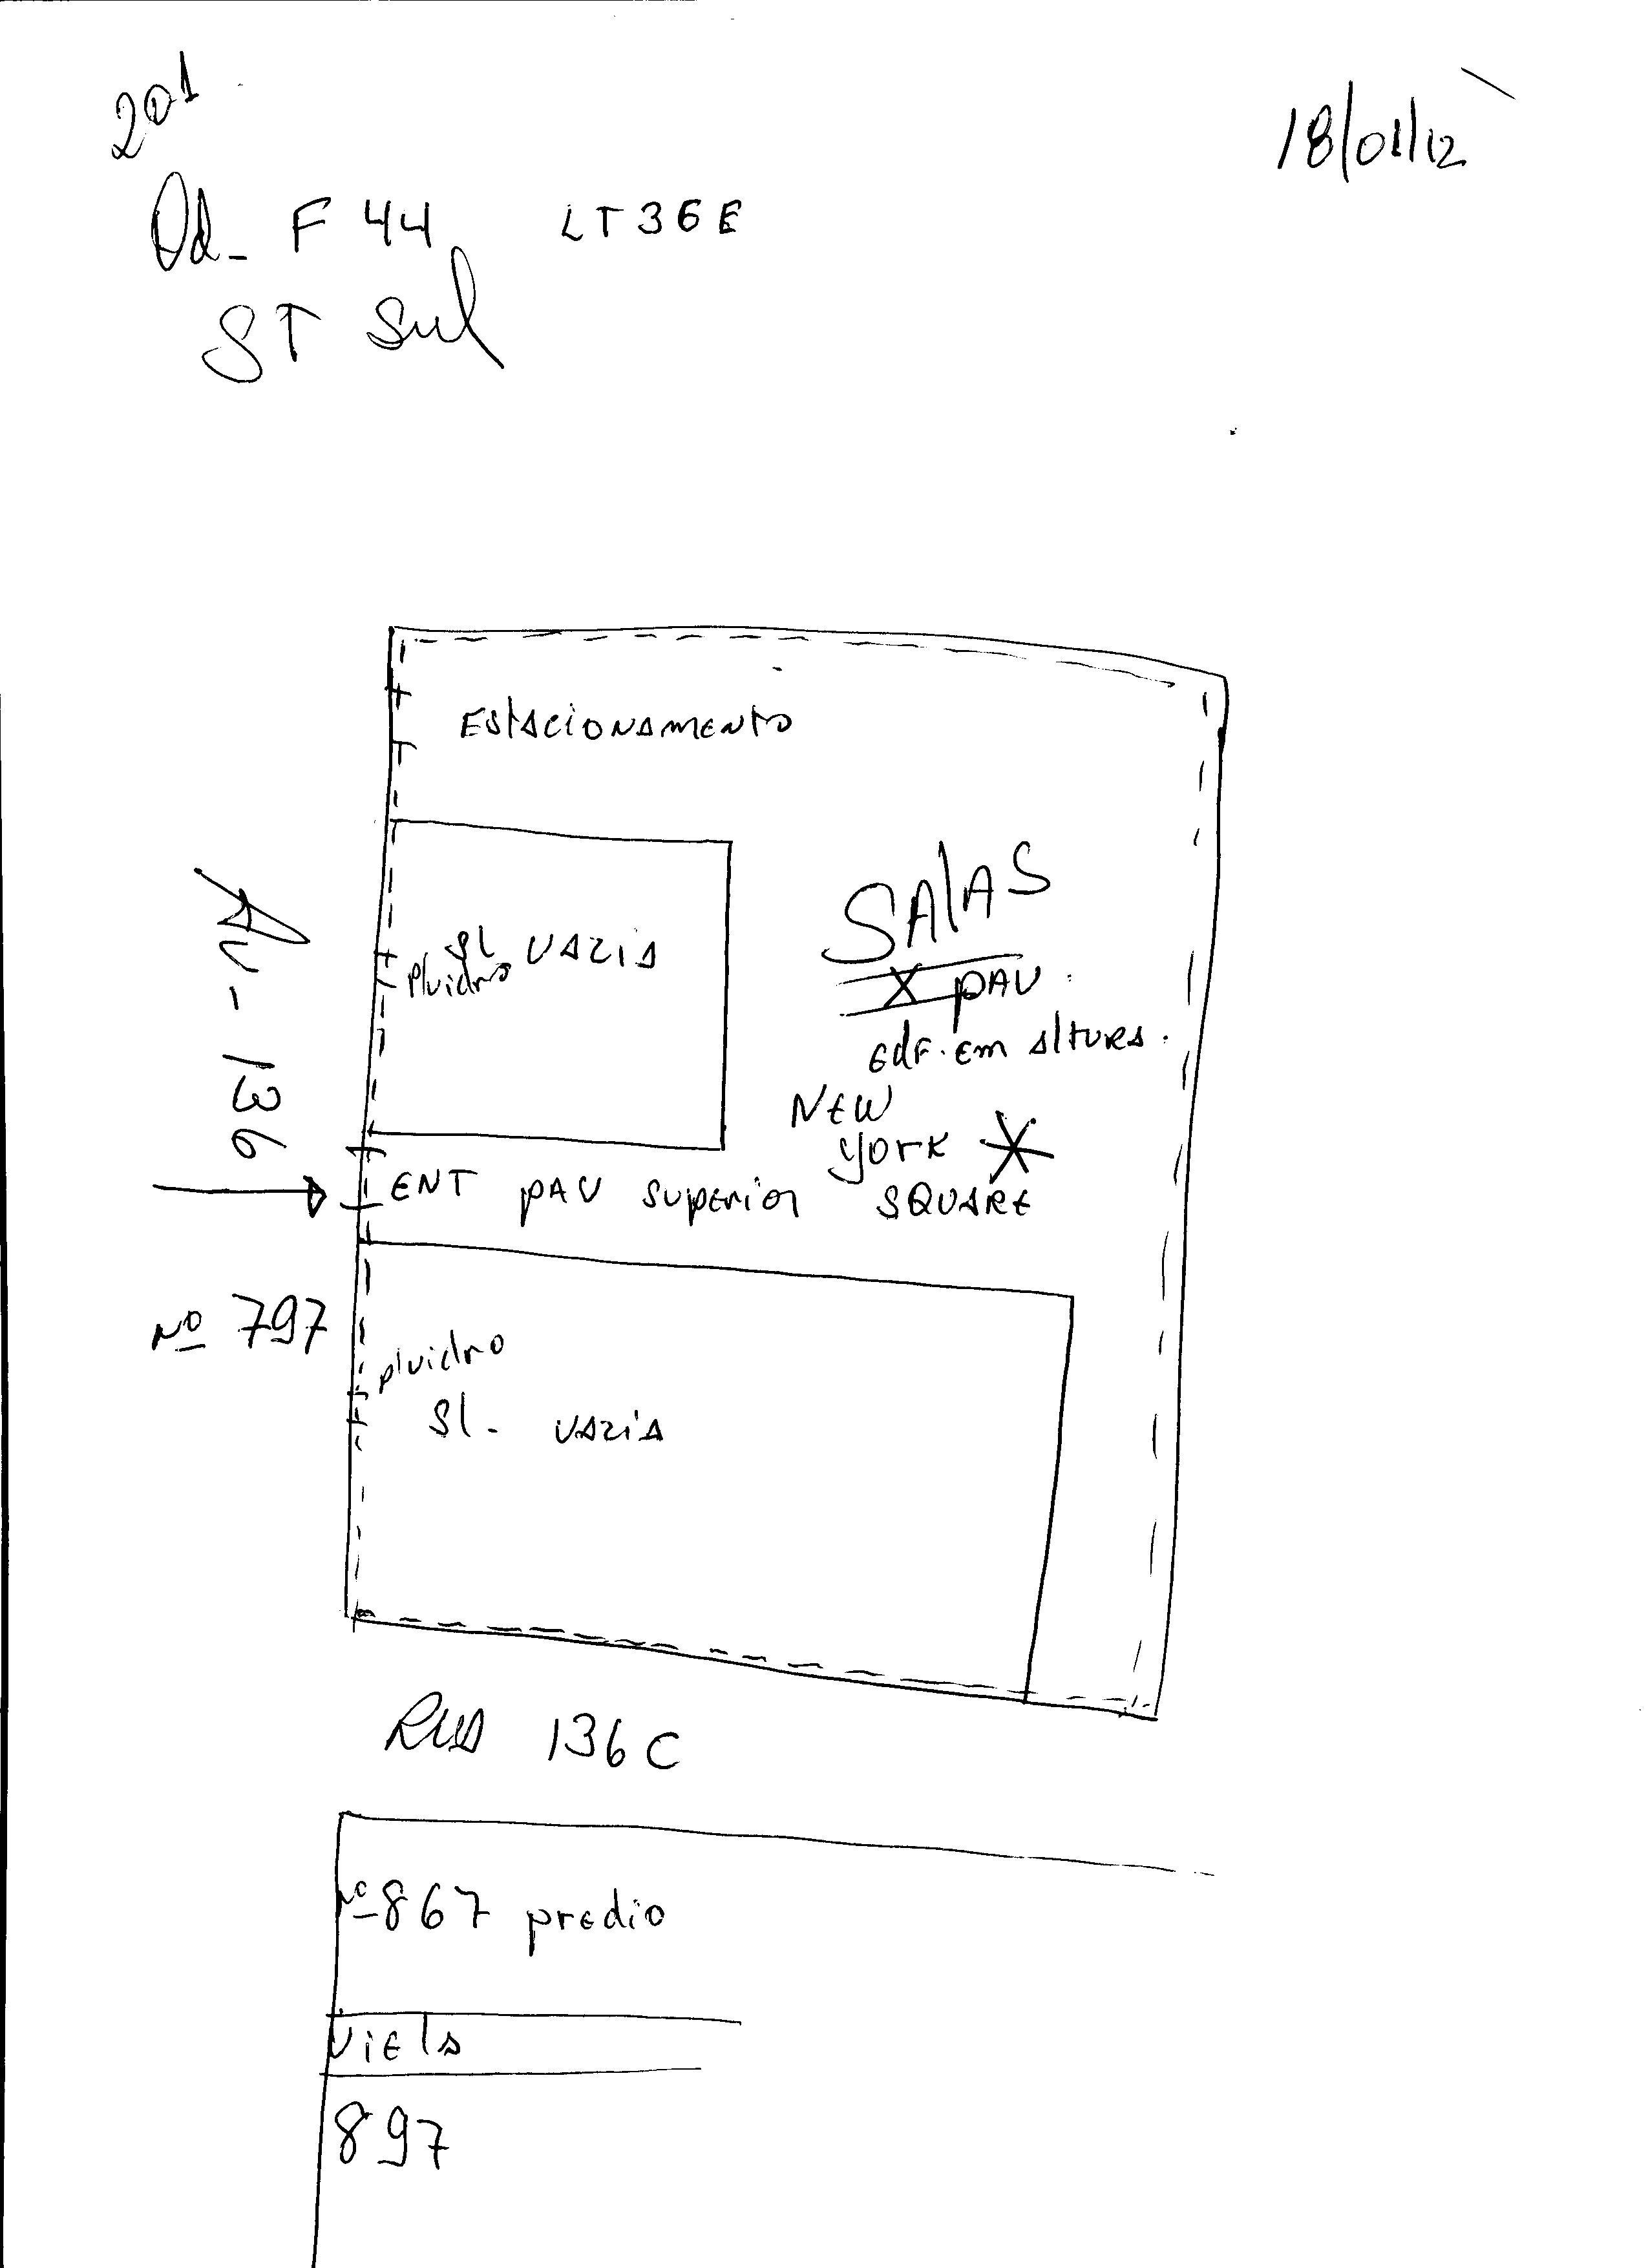 201
Qd_ F 44 LT 36 E
ST Sul
18/01/12
Estacionamento
Sl vazia
p/vidro
SALAS
X PAV.
Edf. em altura.
NEW
YORK *
SQUARE
Av - 136
ENT PAV superior
Nº 797
p/vidro
Sl. vazia
Rua 136 C
nº 867 predio
Viela
897